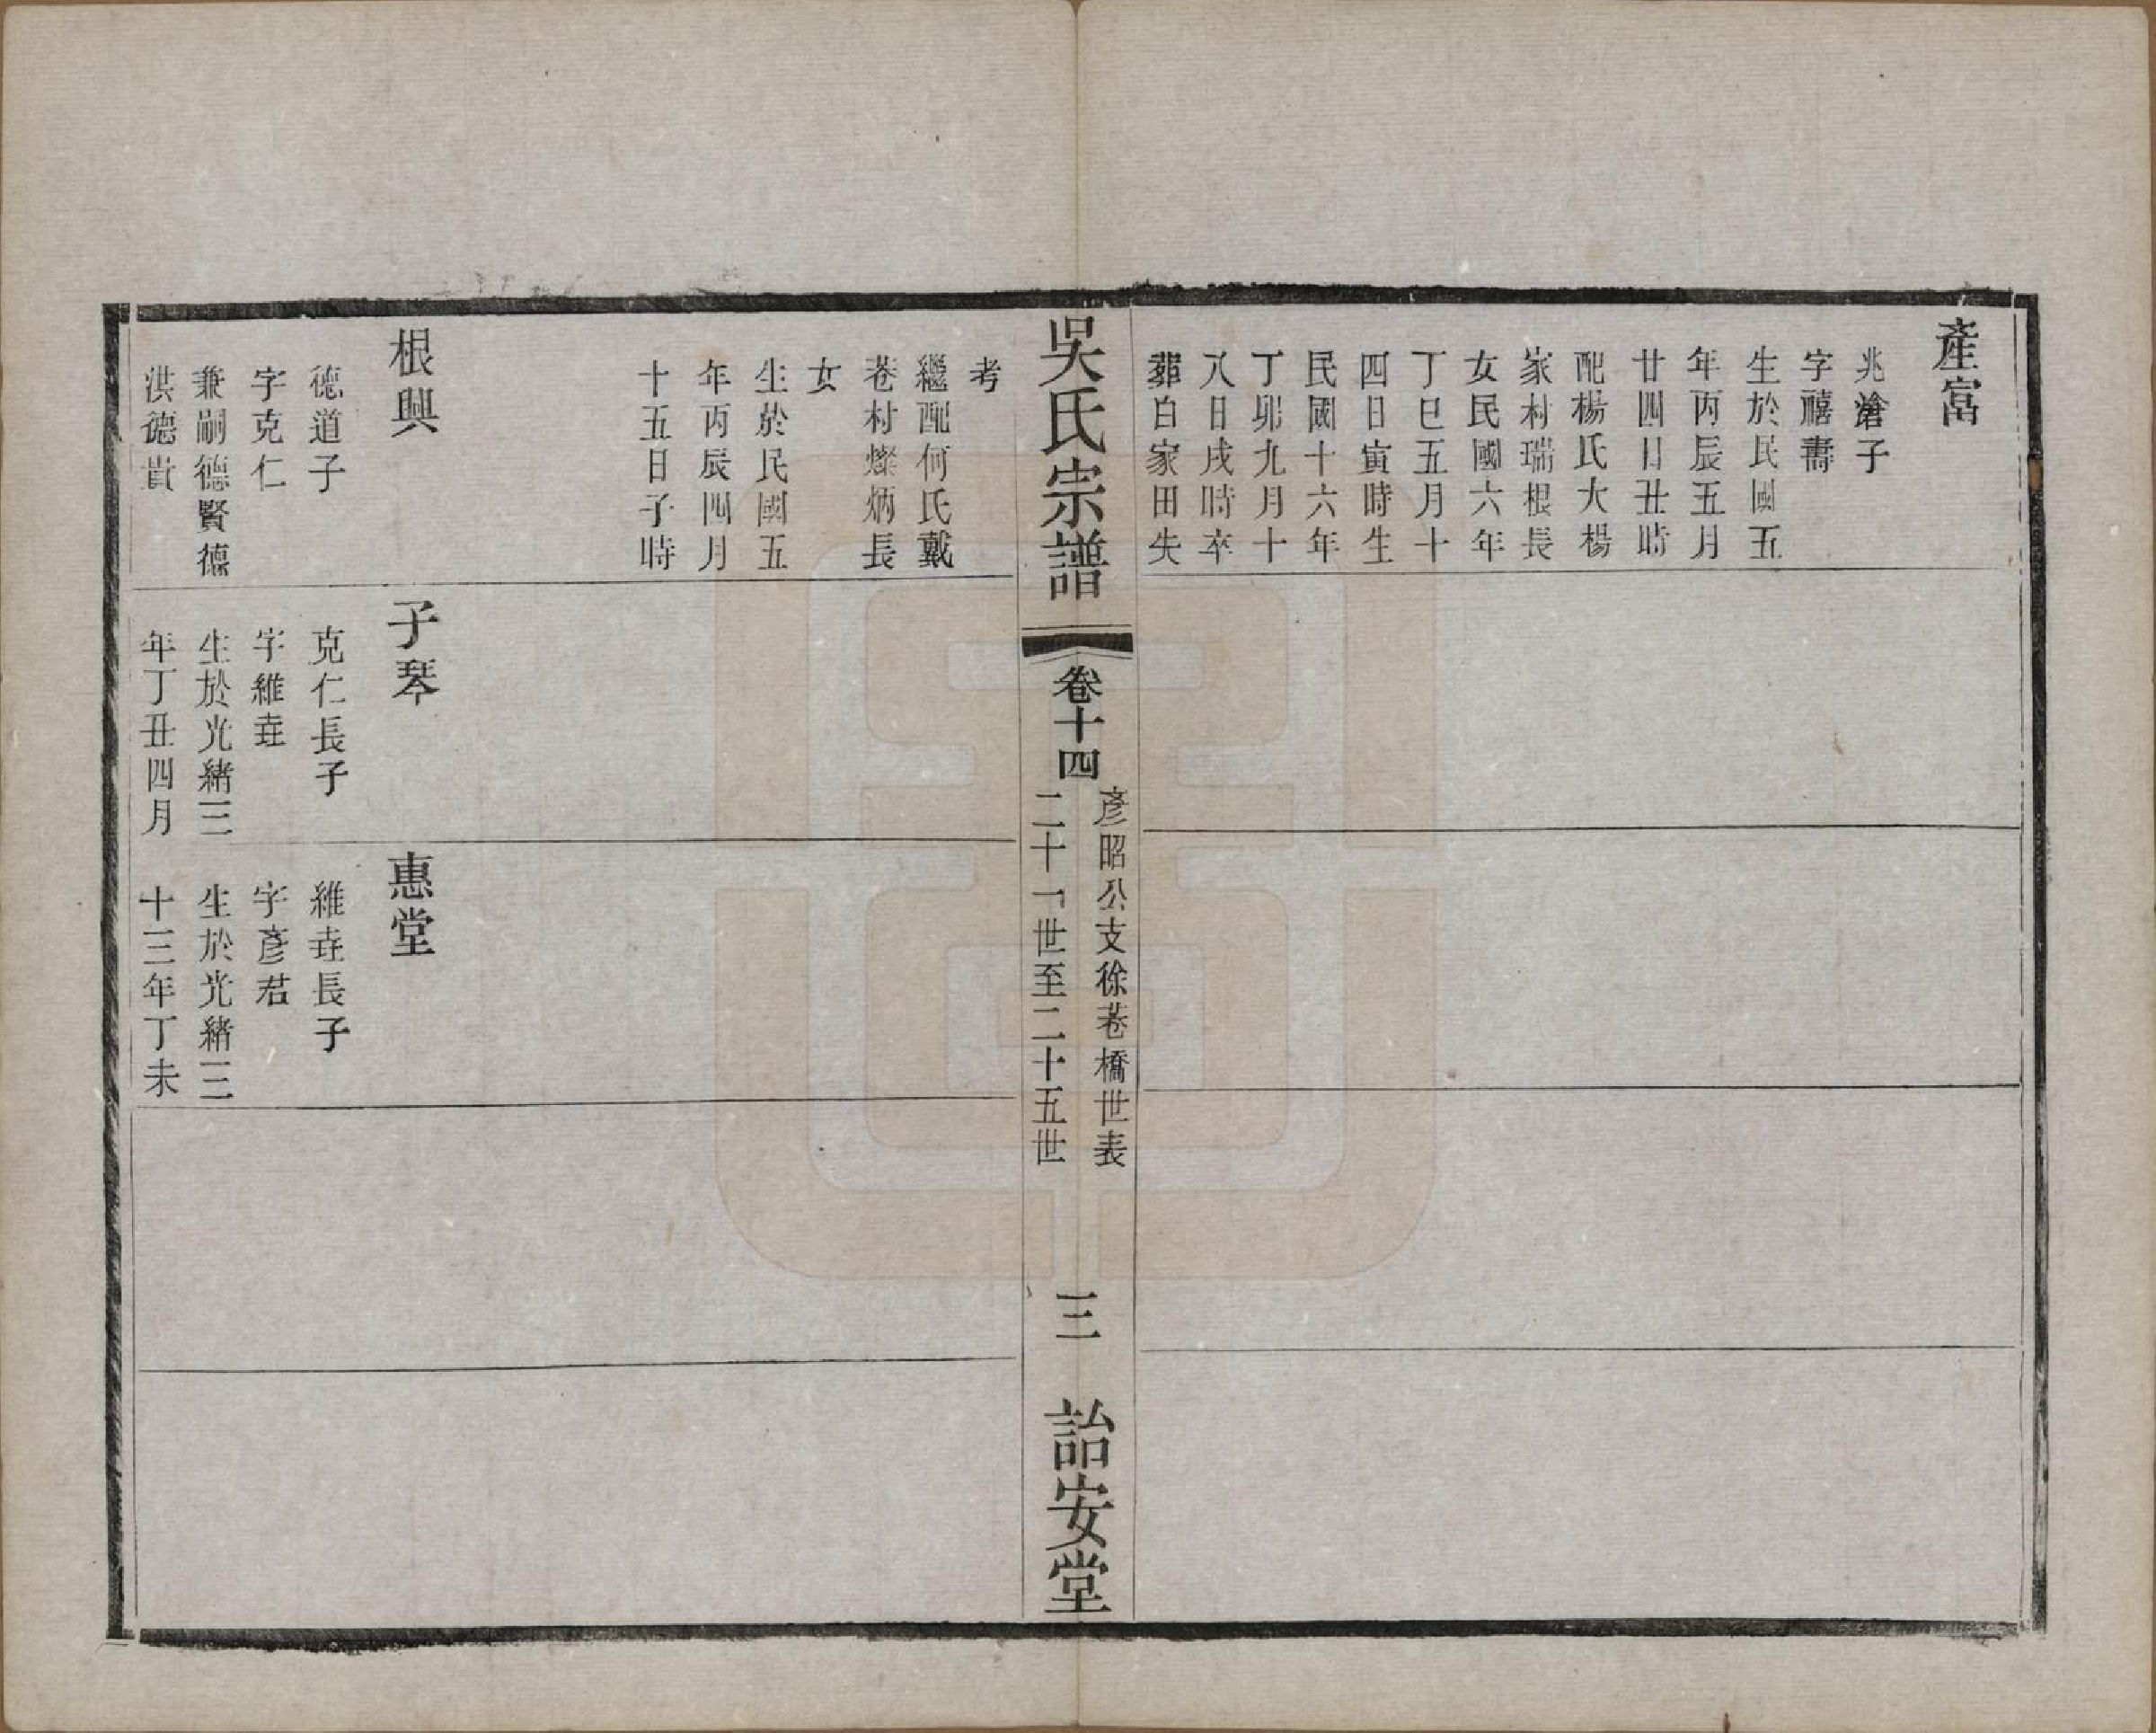 產富
兆滄子
字禧壽
生於民國五
年丙辰五月
廿四日丑時
配楊氏大楊
家村瑞根長
女民國六年
丁巳五月十
四日寅時生
民國十六年
丁卯九月十
八日戌時卒
葬白家田失
吳氏宗譜
卷十四
彥昭公支徐巷橋世表
二十一世至二十五世
三
詒安堂
考
繼配何氏戴
巷村燦炳長
女
生於民國五
年丙辰四月
十五日子時
根興
德道子
字克仁
兼嗣德賢德
洪德貴
子琴
克仁長子
字維垚
生於光緒三
年丁丑四月
惠堂
維垚長子
字彥君
生於光緒三
十三年丁未